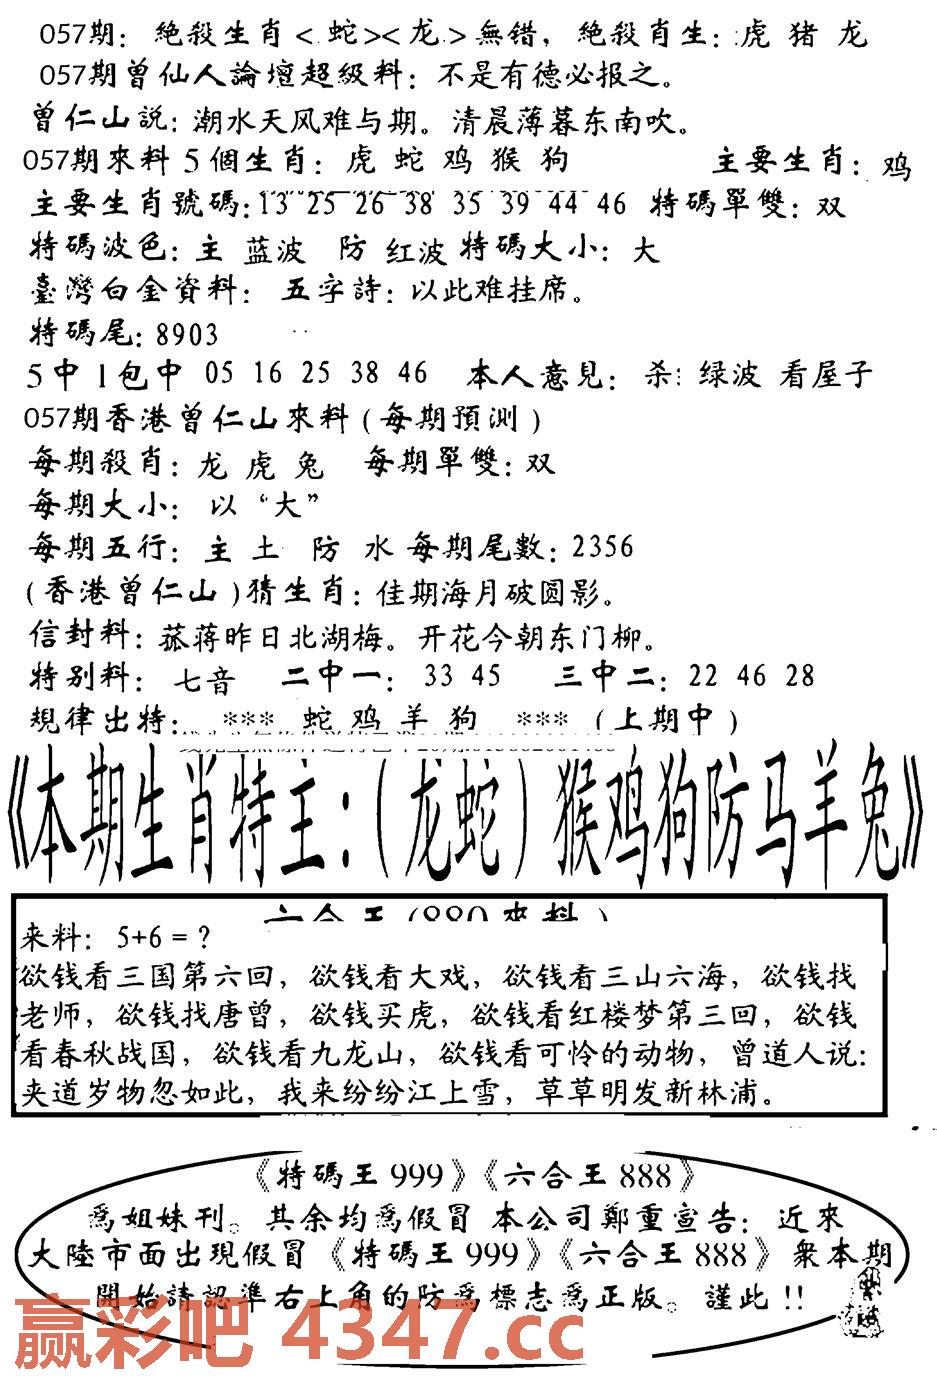 057期: 絶殺生肖<蛇><龙>無错, 絶殺肖生: 虎 猪 龙
057期曾仙人論壇超級料: 不是有德必报之。
曾仁山説: 潮水天风难与期。清晨薄暮东南吹。
057期來料 5 個生肖: 虎 蛇 鸡 猴 狗 主要生肖: 鸡
主要生肖號碼: 13 25 26 38 35 39 44 46 特碼單雙: 双
特碼波色: 主 蓝波 防 红波 特碼大小: 大
臺灣白金資料: 五字詩: 以此难挂席。
特碼尾: 8903
5 中 1 包中 05 16 25 38 46 本人意見: 杀: 绿波 看屋子
057期香港曾仁山來料 ( 每期預測 )
每期殺肖: 龙 虎 兔 每期單雙: 双
每期大小: 以 “大”
每期五行: 主 土 防 水 每期尾數: 2356
( 香港曾仁山 ) 猜生肖: 佳期海月破圆影。
信封料: 菰蒋昨日北湖梅。开花今朝东门柳。
特别料: 七音 二中一: 33 45 三中二: 22 46 28
規律出特: *** 蛇 鸡 羊 狗 *** ( 上期中 )
《本期生肖特主:(龙蛇)猴鸡狗防马羊兔》
来料: 5+6 = ?
欲钱看三国第六回, 欲钱看大戏, 欲钱看三山六海, 欲钱找
老师, 欲钱找唐曾, 欲钱买虎, 欲钱看红楼梦第三回, 欲钱
看春秋战国, 欲钱看九龙山, 欲钱看可怜的动物, 曾道人说:
夹道岁物忽如此, 我来纷纷江上雪, 草草明发新林浦。
《特碼王 999》《六合王 888》
爲姐妹刊。其余均爲假冒 本公司鄭重宣告: 近來
大陸市面出現假冒《特碼王 999》《六合王 888》衆本期
開始請認準右上角的防爲標志爲正版。謹此 !!
赢彩吧 4347.cc